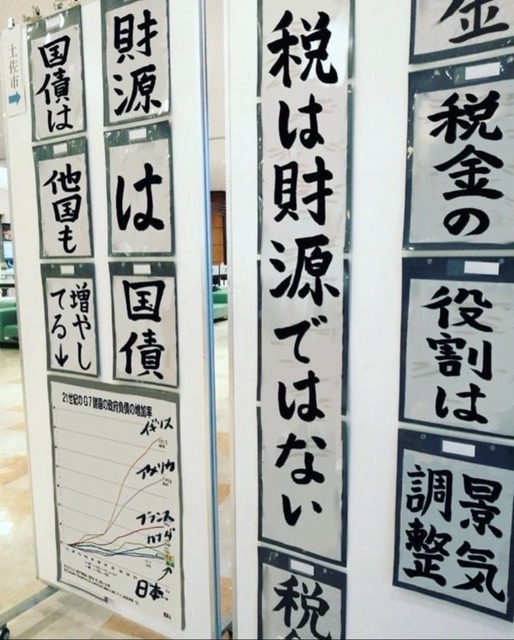 金
税金の
役割は
景気
調整
税は財源ではない
税
財源
は
国債
国債は
他国も
増やし
てる↓
土佐市
→
21世紀のG7諸国の政府負債の増加率
イギリス
アメリカ
フランス
カナダ
日本